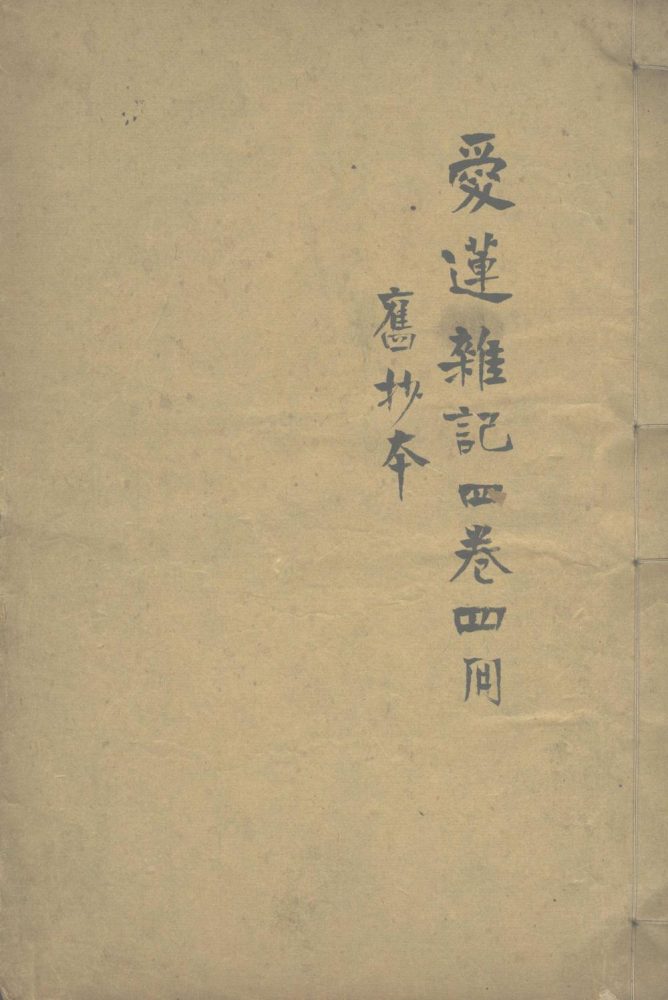 愛蓮雜記四卷四冋
舊抄本